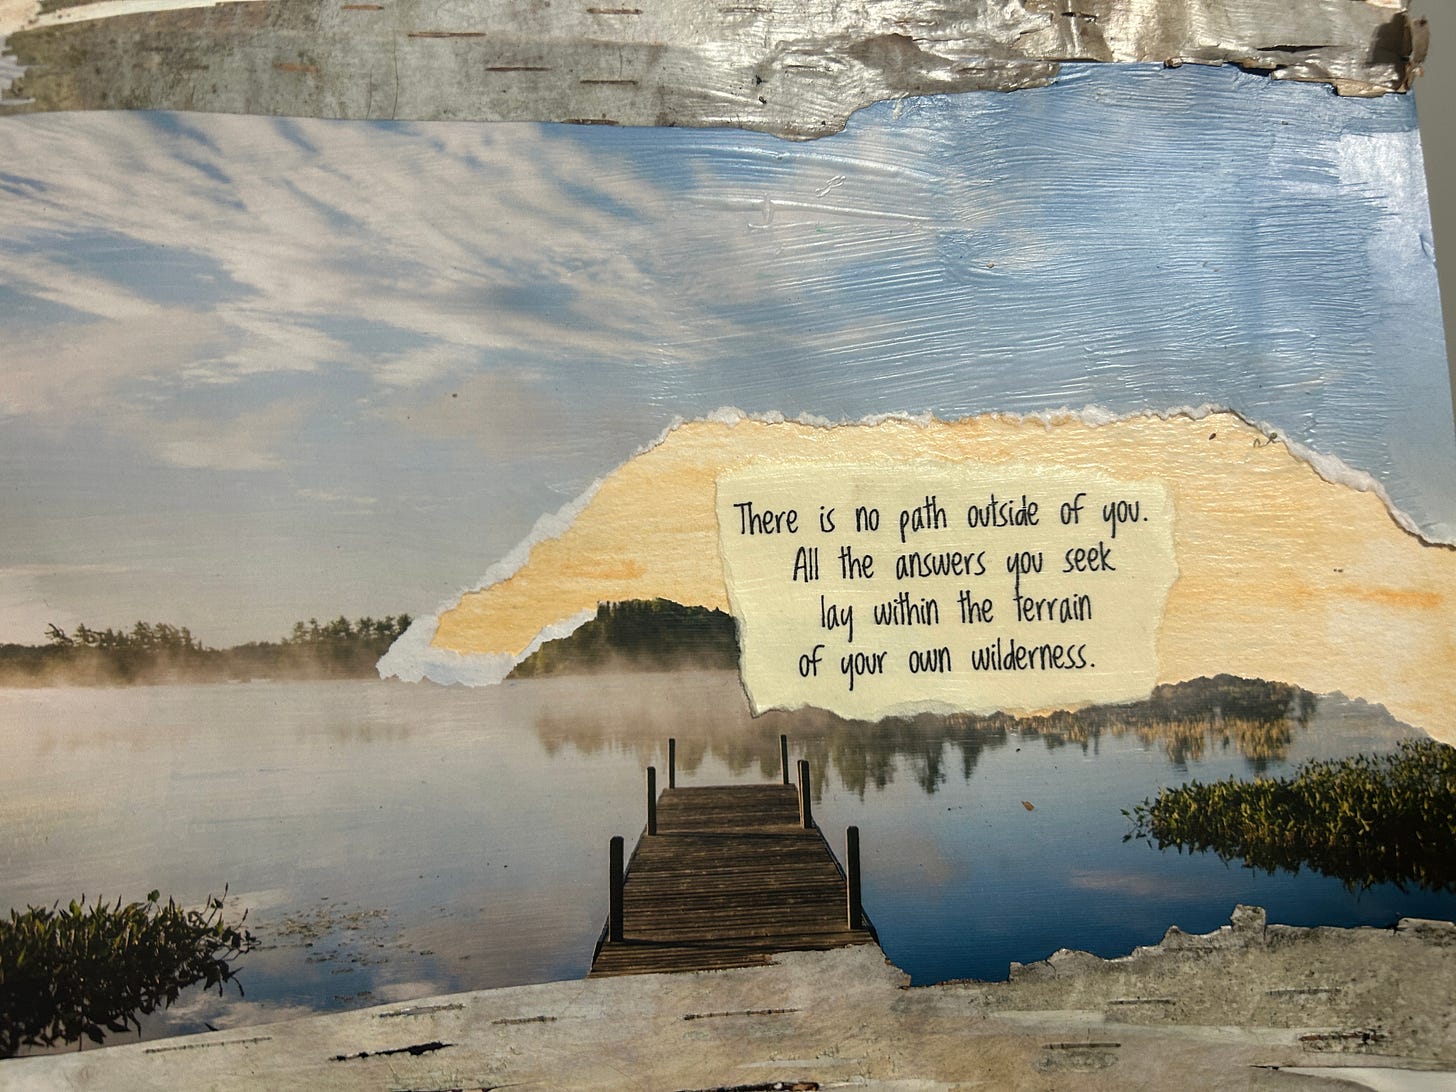 There is no path outside of you.
All the answers you seek
lay within the terrain
of your own wilderness.